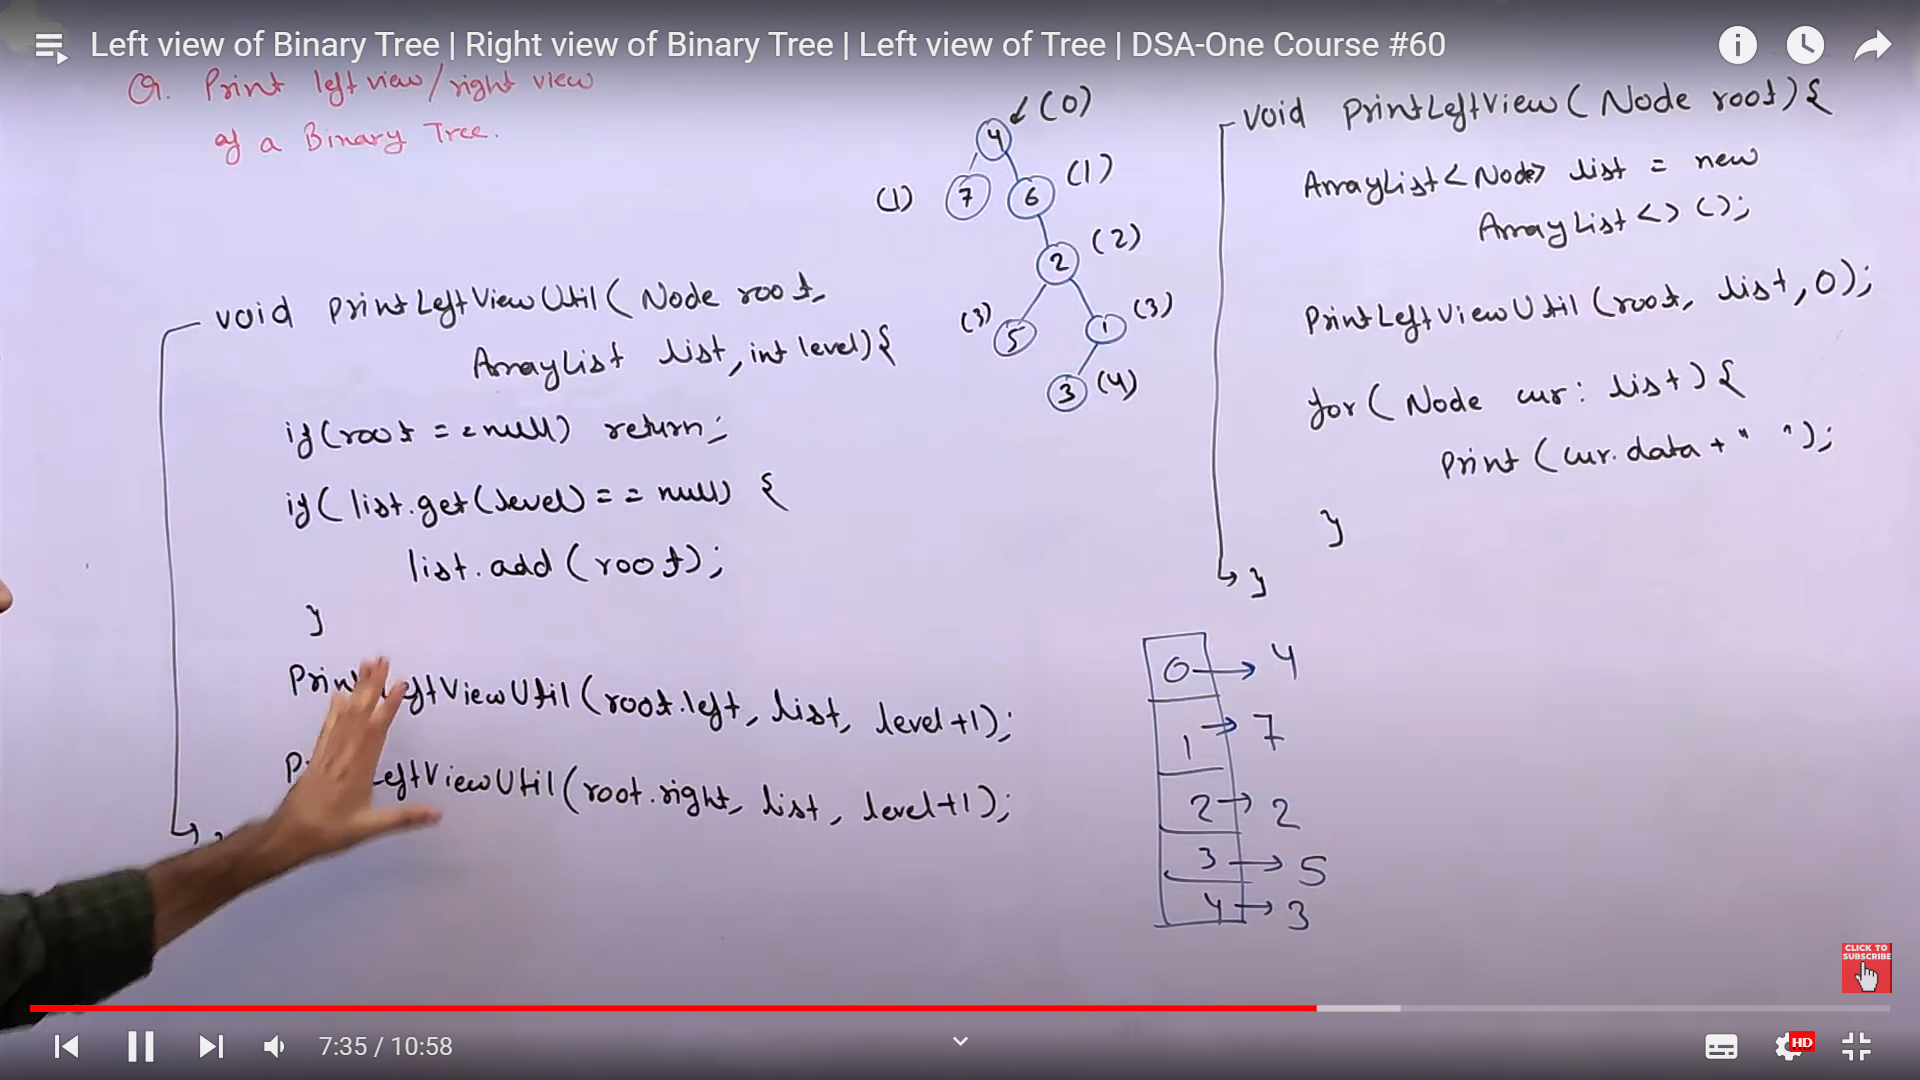 Left view of Binary Tree | Right view of Binary Tree | Left view of Tree | DSA-One Course #60
Q. Print left view/right view
of a Binary Tree.
void PrintLeftViewUtil( Node root,
ArrayList list, int level){
if(root == null) return;
if( list.get(level) == null) {
list.add (root);
}
LeftViewUtil(root.left, list, level+1);
LeftViewUtil(root.right, list, level+1);
4 (0)
(1) 7 6 (1)
2 (2)
(3) 5 1 (3)
3 (4)
void PrintLeftView( Node root){
ArrayList<Node> list = new
ArrayList<> ();
PrintLeftViewUtil (root, list, 0);
for( Node cur: list){
Print (cur.data + " ");
}
}
0 → 4
1 → 7
2 → 2
3 → 5
4 → 3
CLICK TO
SUBSCRIBE
7:35 / 10:58
HD